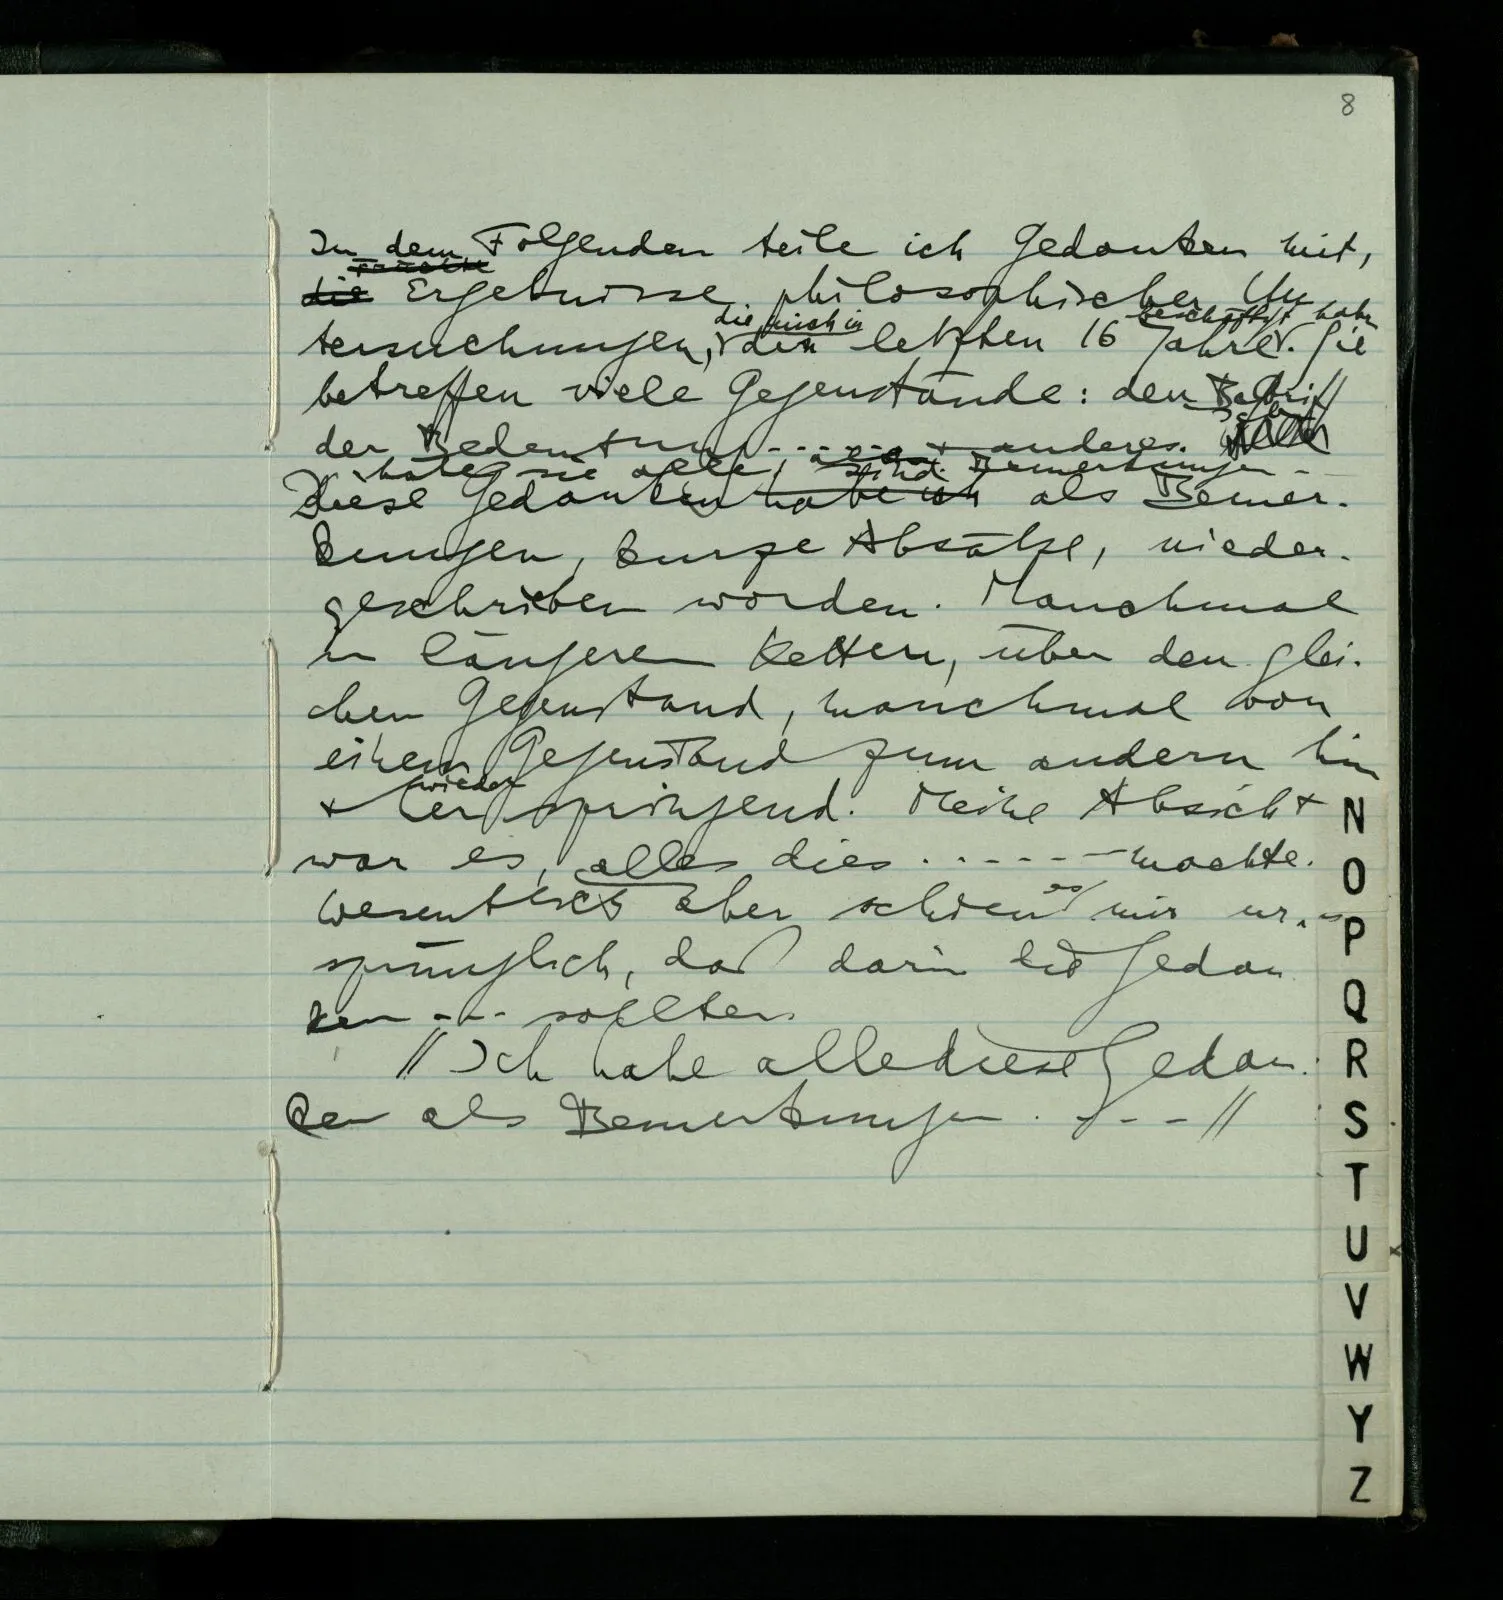 8
In dem Folgenden teile ich Gedanken mit,
die Ergebnisse philosophischer Un
die mich in beschäftigt haben
tersuchungen, den letzten 16 Jahre. Sie
betreffen viele Gegenstände: den Begriff
der Bedeutung ----- + anderes.
habe sie alle, als Bemerkungen -
sind
Diese Gedanken habe ich als Bemer-
kungen, kurze Absätze, nieder-
geschrieben worden. Manchmal
in längeren Ketten, über den glei-
chen Gegenstand, manchmal von
einem Gegenstand zum andern hin
wieder
+ her springend. Meine Absicht
war es, alles dies ------ machte.
es
Wesentlich aber schien mir ur-
sprünglich, daß darin die Gedan
ken --- sollten.
// Ich habe alle diese Gedan-
ken als Bemerkungen ---- //
N
O
P
Q
R
S
T
U
V
W
Y
Z